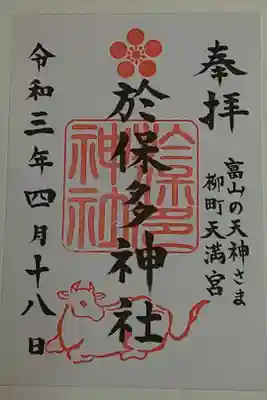 奉拝
富山の天神さま
柳町天満宮
於保多神社
於保多
神社
令和三年四月十八日